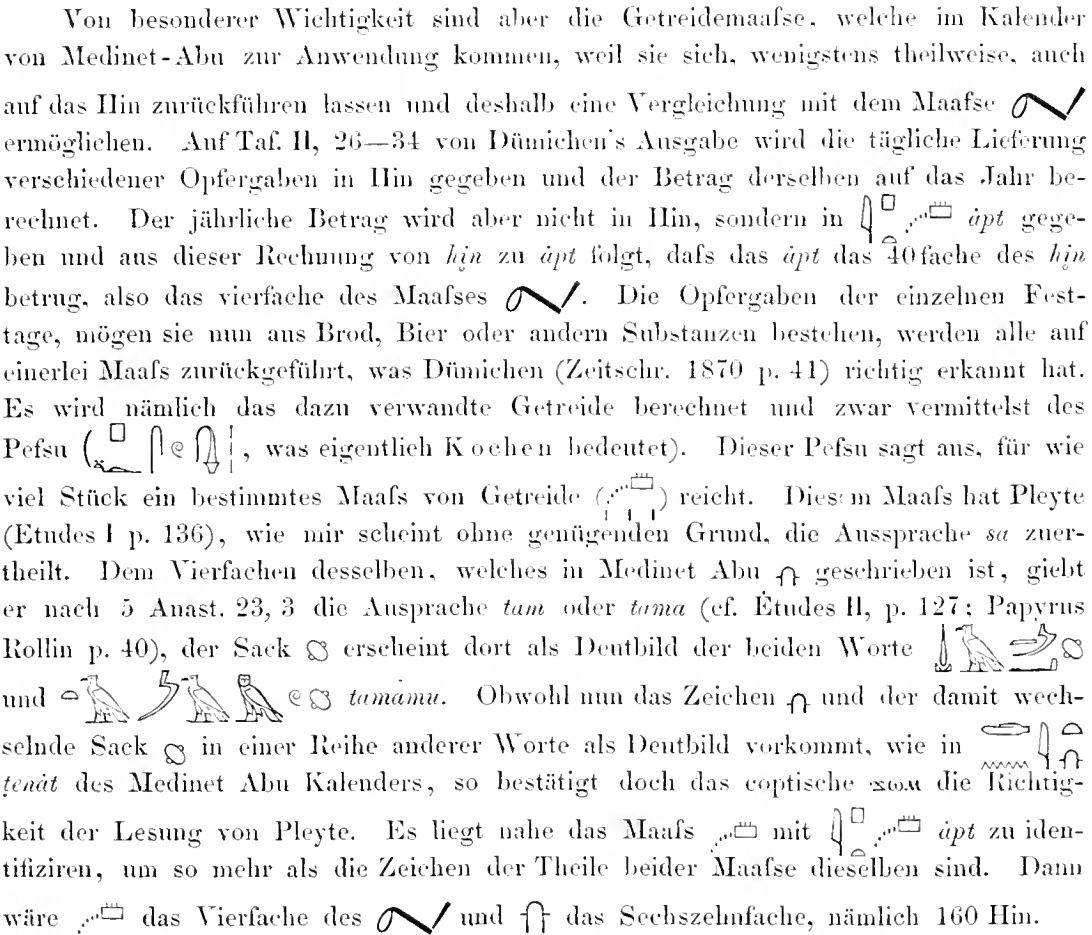 Von besonderer Wichtigkeit sind aber die Getreidemaafse, welche im Kalender
von Medinet-Abu zur Anwendung kommen, weil sie sich, wenigstens theilweise, auch
auf das Hin zurückführen lassen und deshalb eine Vergleichung mit dem Maafse
ermöglichen. Auf Taf. II, 26—34 von Dümichen's Ausgabe wird die tägliche Lieferung
verschiedener Opfergaben in Hin gegeben und der Betrag derselben auf das Jahr be-
rechnet. Der jährliche Betrag wird aber nicht in Hin, sondern in ȧpt gege-
ben und aus dieser Rechnung von hi̯n zu ȧpt folgt, dafs das ȧpt das 40fache des hi̯n
betrug, also das vierfache des Maafses . Die Opfergaben der einzelnen Fest-
tage, mögen sie nun aus Brod, Bier oder andern Substanzen bestehen, werden alle auf
einerlei Maafs zurückgeführt, was Dümichen (Zeitschr. 1870 p. 41) richtig erkannt hat.
Es wird nämlich das dazu verwandte Getreide berechnet und zwar vermittelst des
Pefsu ( , was eigentlich Kochen bedeutet). Dieser Pefsu sagt aus, für wie
viel Stück ein bestimmtes Maafs von Getreide ( ) reicht. Diesem Maafs hat Pleyte
(Etudes I p. 136), wie mir scheint ohne genügenden Grund, die Aussprache sa zuer-
theilt. Dem Vierfachen desselben, welches in Medinet Abu geschrieben ist, giebt
er nach 5 Anast. 23, 3 die Ausprache tam oder tama (cf. Études II, p. 127; Papyrus
Rollin p. 40), der Sack erscheint dort als Deutbild der beiden Worte
und tamȧmu. Obwohl nun das Zeichen und der damit wech-
selnde Sack in einer Reihe anderer Worte als Deutbild vorkommt, wie in
ṭenȧt des Medinet Abu Kalenders, so bestätigt doch das coptische ϫⲱⲙ die Richtig-
keit der Lesung von Pleyte. Es liegt nahe das Maafs mit ȧpt zu iden-
tifiziren, um so mehr als die Zeichen der Theile beider Maafse dieselben sind. Dann
wäre das Vierfache des und das Sechszehnfache, nämlich 160 Hin.